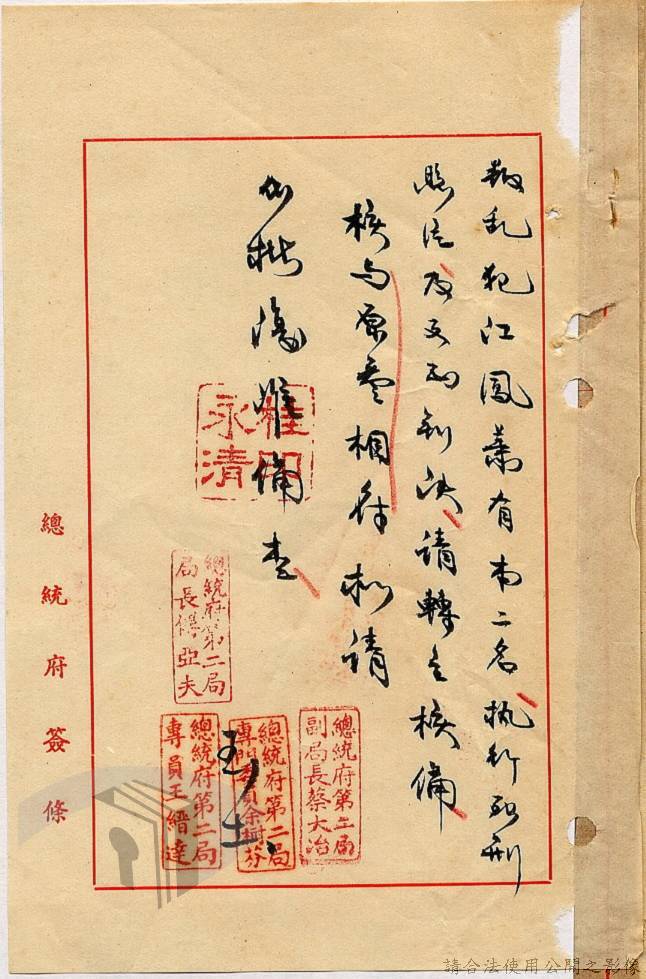 叛乱犯江鳳有二名、执行死刑
照片及判决、請轉呈核備、
核与原卷相符拟請
復准備查
桂印
永清
總統府第二局
局長傅亞夫
總統府第二局
副局長蔡大冶
總統府第二局
專門委員余樹芬
總統府第二局
專員王縉達
總統府簽條
請合法使用公開之影像